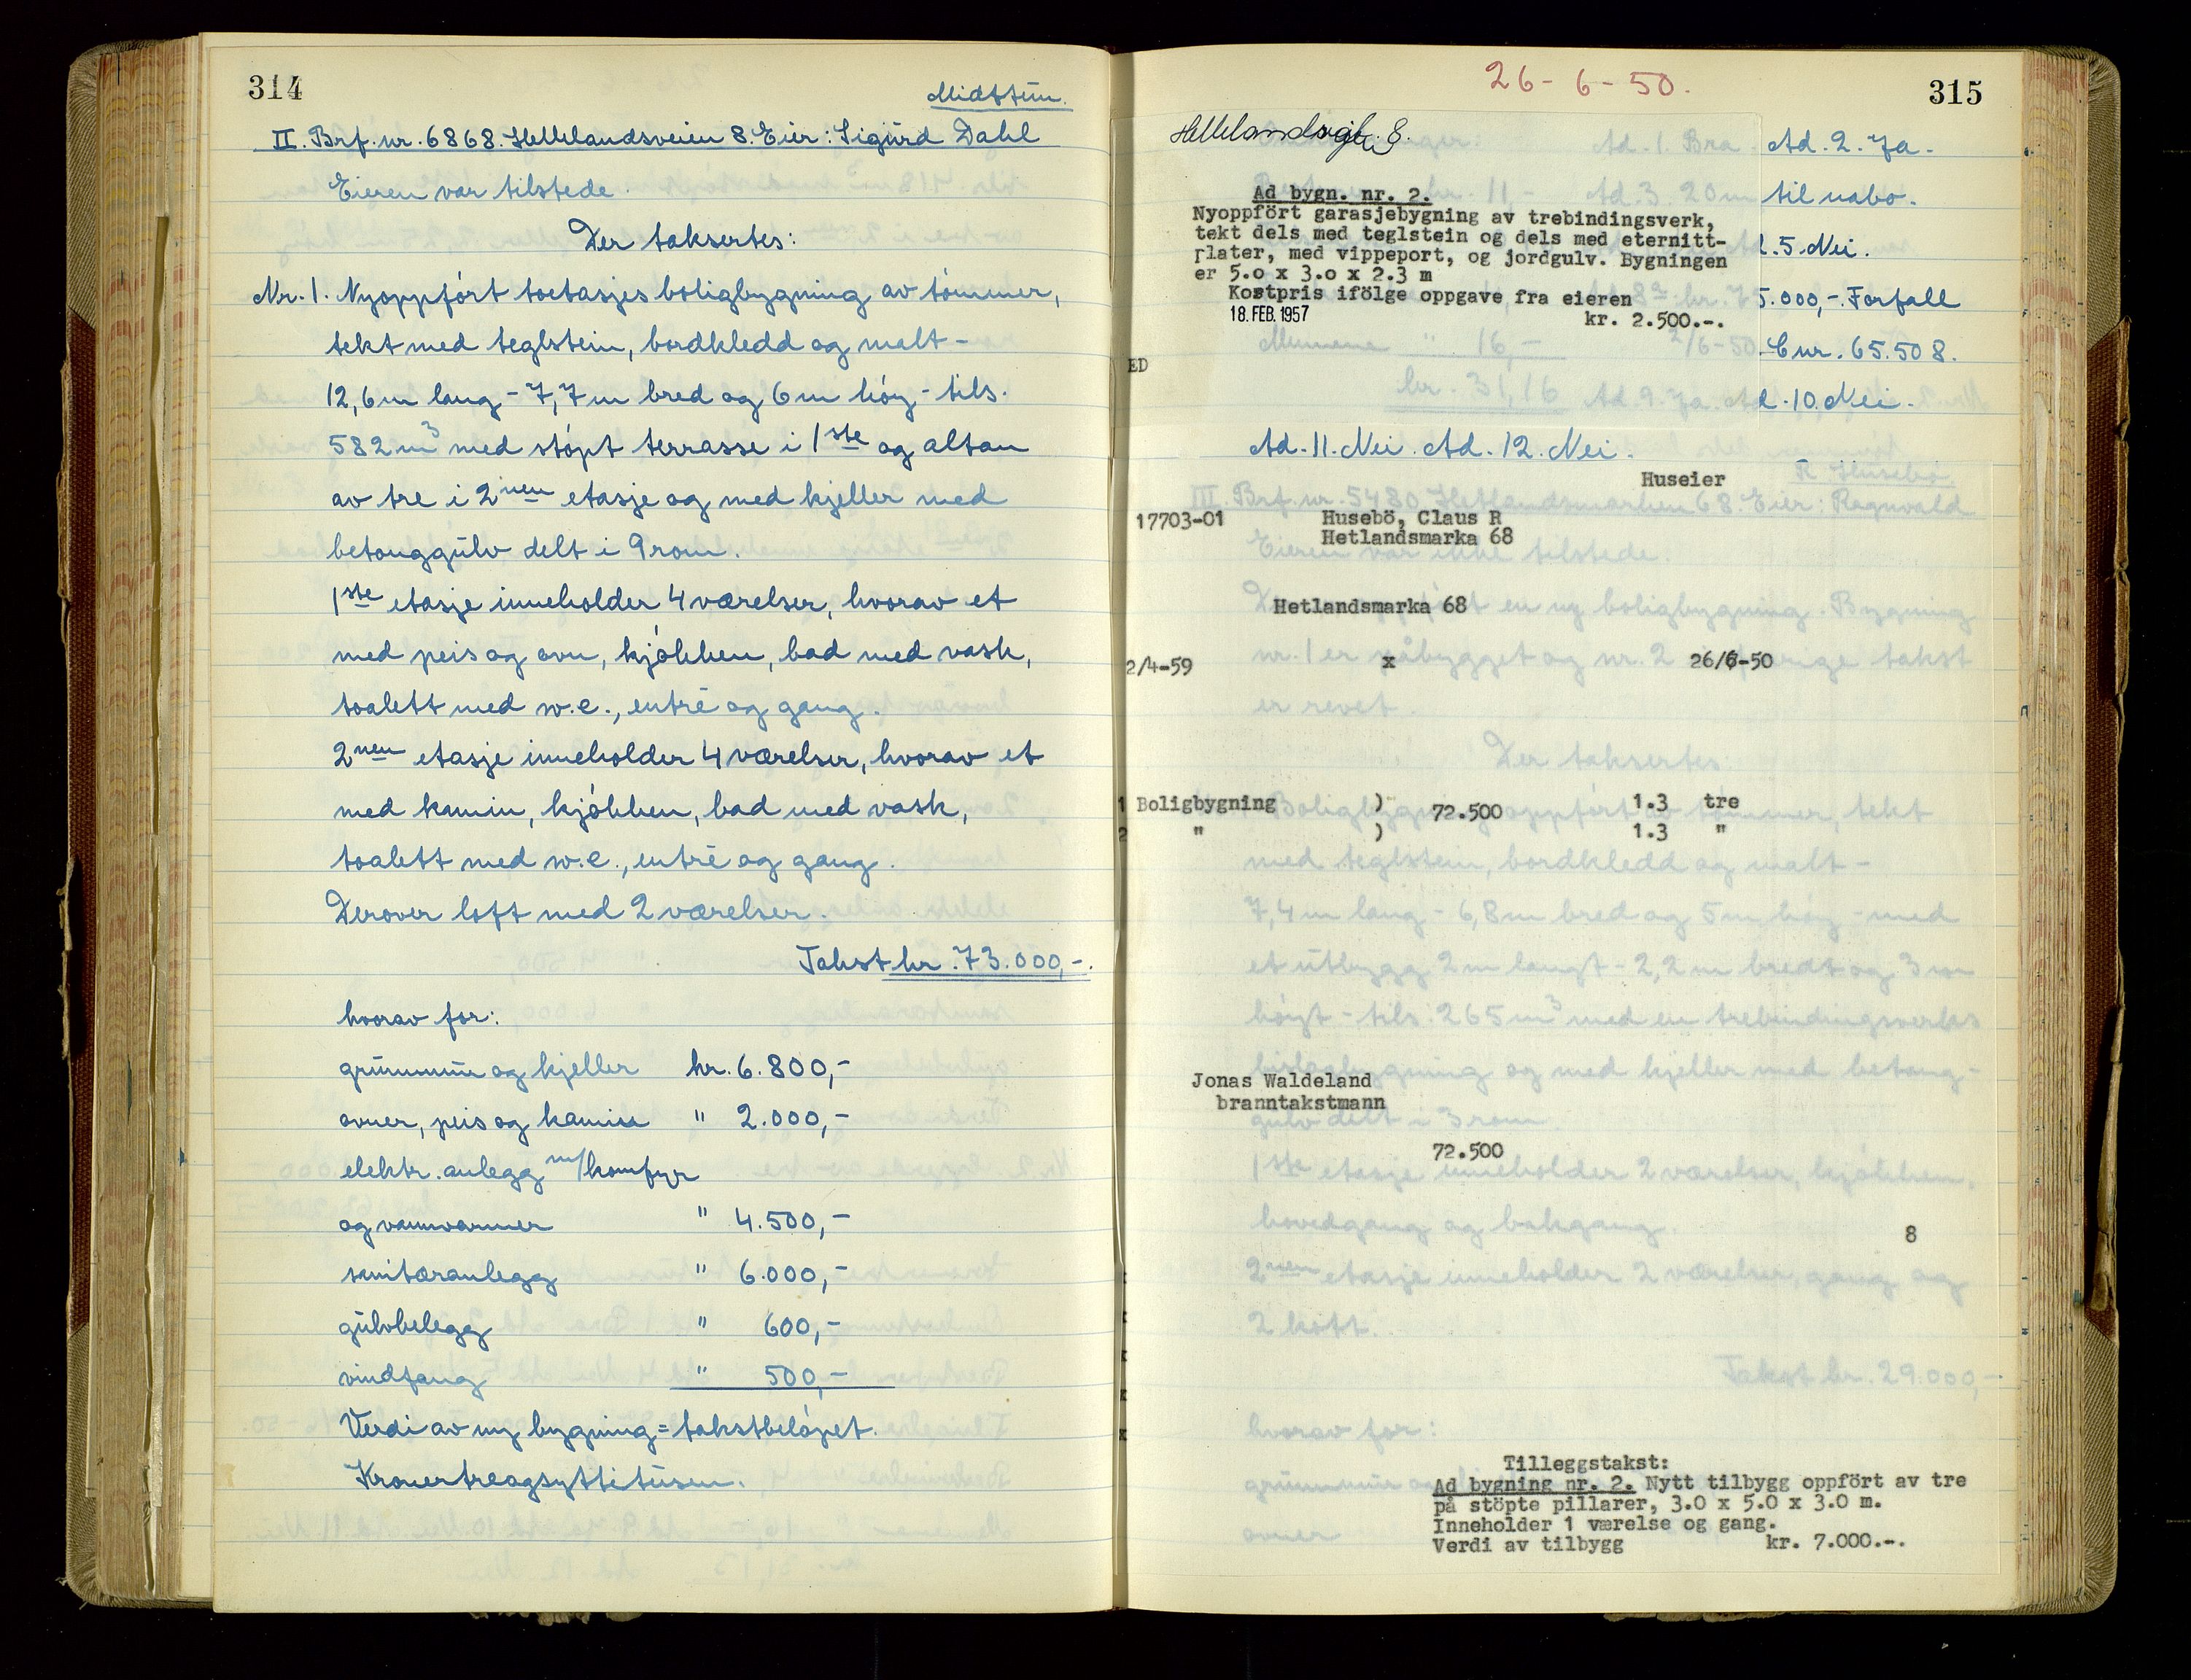 314
Midttun.
II. Brf. nr. 6868. Hellelandsveien 8. Eier: Sigurd Dahl
Eieren var tilstede.
Der taksertes:
Nr. 1. Nyoppført toetasjes boligbygning av tømmer,
tekt med teglstein, bordkledd og malt -
12,6 m lang - 7,7 m bred og 6 m høy - tils.
582 m³ med støpt terrasse i 1ste og altan
av tre i 2nen etasje og med kjeller med
betonggulv delt i 9 rom.
1ste etasje inneholder 4 værelser, hvorav et
med peis og ovn, kjøkken, bad med vask,
toalett med w.c., entré og gang.
2nen etasje inneholder 4 værelser, hvorav et
med kamin, kjøkken, bad med vask,
toalett med w.c., entré og gang.
Derover loft med 2 værelser.
Takst kr. 73.000,-.
hvorav for:
grunnmur og kjeller kr. 6.800,-
ovner, peis og kamin " 2.000,-
elektr. anlegg m/komfyr
og vannvarmer " 4.500,-
sanitæranlegg " 6.000,-
gulvbelegg " 600,-
vindfang " 500,-
Verdi av ny bygning = takstbeløpet.
Kronertreogsyttitusen.
26-6-50.
315
Ad. 1. Bra. Ad. 2. Ja.
Ad. 3. 20 m til nabo.
Ad. 5 Nei.
5.000,-. Forfall
2/6-50 - C nr. 65.508.
Mennene " 16,-
kr. 31,16 Ad. 9. Ja. Ad. 10. Nei.
Ad. 11. Nei. Ad. 12. Nei.
Ad bygn. nr. 2.
Nyoppfört garasjebygning av trebindingsverk,
tekt dels med teglstein og dels med eternitt-
plater, med vippeport, og jordgulv. Bygningen
er 5.0 x 3.0 x 2.3 m
Kostpris ifölge oppgave fra eieren
18. FEB. 1957
kr. 2.500.-.
ED
Huseier
R. Husebø.
III. Brf. nr. 5480 Hetlandsmarken 68. Eier: Ragnvald
17703-01 Husebö, Claus R
Hetlandsmarka 68
Eieren var ikke tilstede.
Hetlandsmarka 68
en ny boligbygning. Bygning
nr. 1 er påbygget og nr. 2 i forrige takst
2/4-59 x 26/6-50
er revet.
Der taksertes:
1 Boligbygning ) 72.500 1.3 tre
2 " ) 1.3 "
Boligbygning oppført av tømmer, tekt
med teglstein, bordkledd og malt -
7,4 m lang - 6,8 m bred og 5 m høy - med
et utbygg 2 m langt - 2,2 m bredt og 3 m
høyt - tils. 265 m³ med en trebindingsverks
og med kjeller med betong-
Jonas Waldeland
branntakstmann
gulv delt i 3 rom.
72.500
1ste etasje inneholder 2 værelser, kjøkken,
hovedgang og bakgang.
8
2nen etasje inneholder 2 værelser, gang og
2 kott.
Takst kr. 29.000,-
hvorav for:
grunnmur og
ovner
Tilleggstakst:
Ad bygning nr. 2. Nytt tilbygg oppfört av tre
på stöpte pillarer, 3.0 x 5.0 x 3.0 m.
Inneholder 1 værelse og gang.
Verdi av tilbygg kr. 7.000.-.